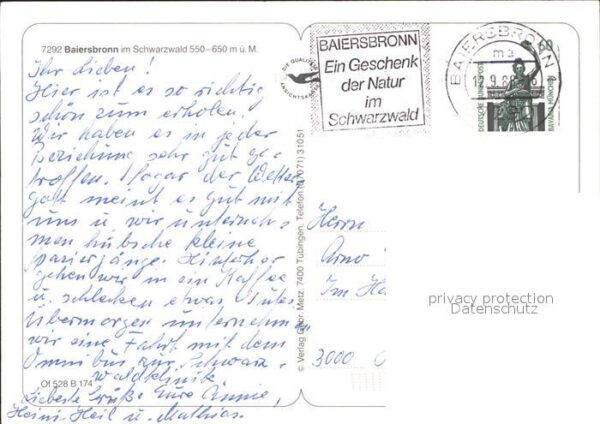 7292 Baiersbronn im Schwarzwald 550–650 m ü. M.
Ihr Lieben!
Hier ist es so richtig
schön zum erholen.
Wir haben es in jeder
Beziehung sehr gut ge-
troffen. Sogar der Wetter-
gott meint es gut mit
uns u. wir unterneh-
men hübsche kleine
Spaziergänge. Hinterher
gehen wir in ein Kaffee
u. schlecken etwas Gutes
Übermorgen unternehmen
wir eine Fahrt mit dem
Omnibus zur Schwarz-
waldklinik
Liebste Grüße Eure Annie,
Heini-Heil u. Mathias.
Of 528 B 174
© Verlag Gebr. Metz, 7400 Tübingen, Telefon (07071) 31051
DIE QUALITÄTS
ANSICHTSKARTE
BAIERSBRONN
Ein Geschenk
der Natur
im
Schwarzwald
BAIERSBRONN
ma
60
DEUTSCHE BUNDESPOST
BAVARIA MÜNCHEN
Herrn
Arno
Im
3000
privacy protection
Datenschutz